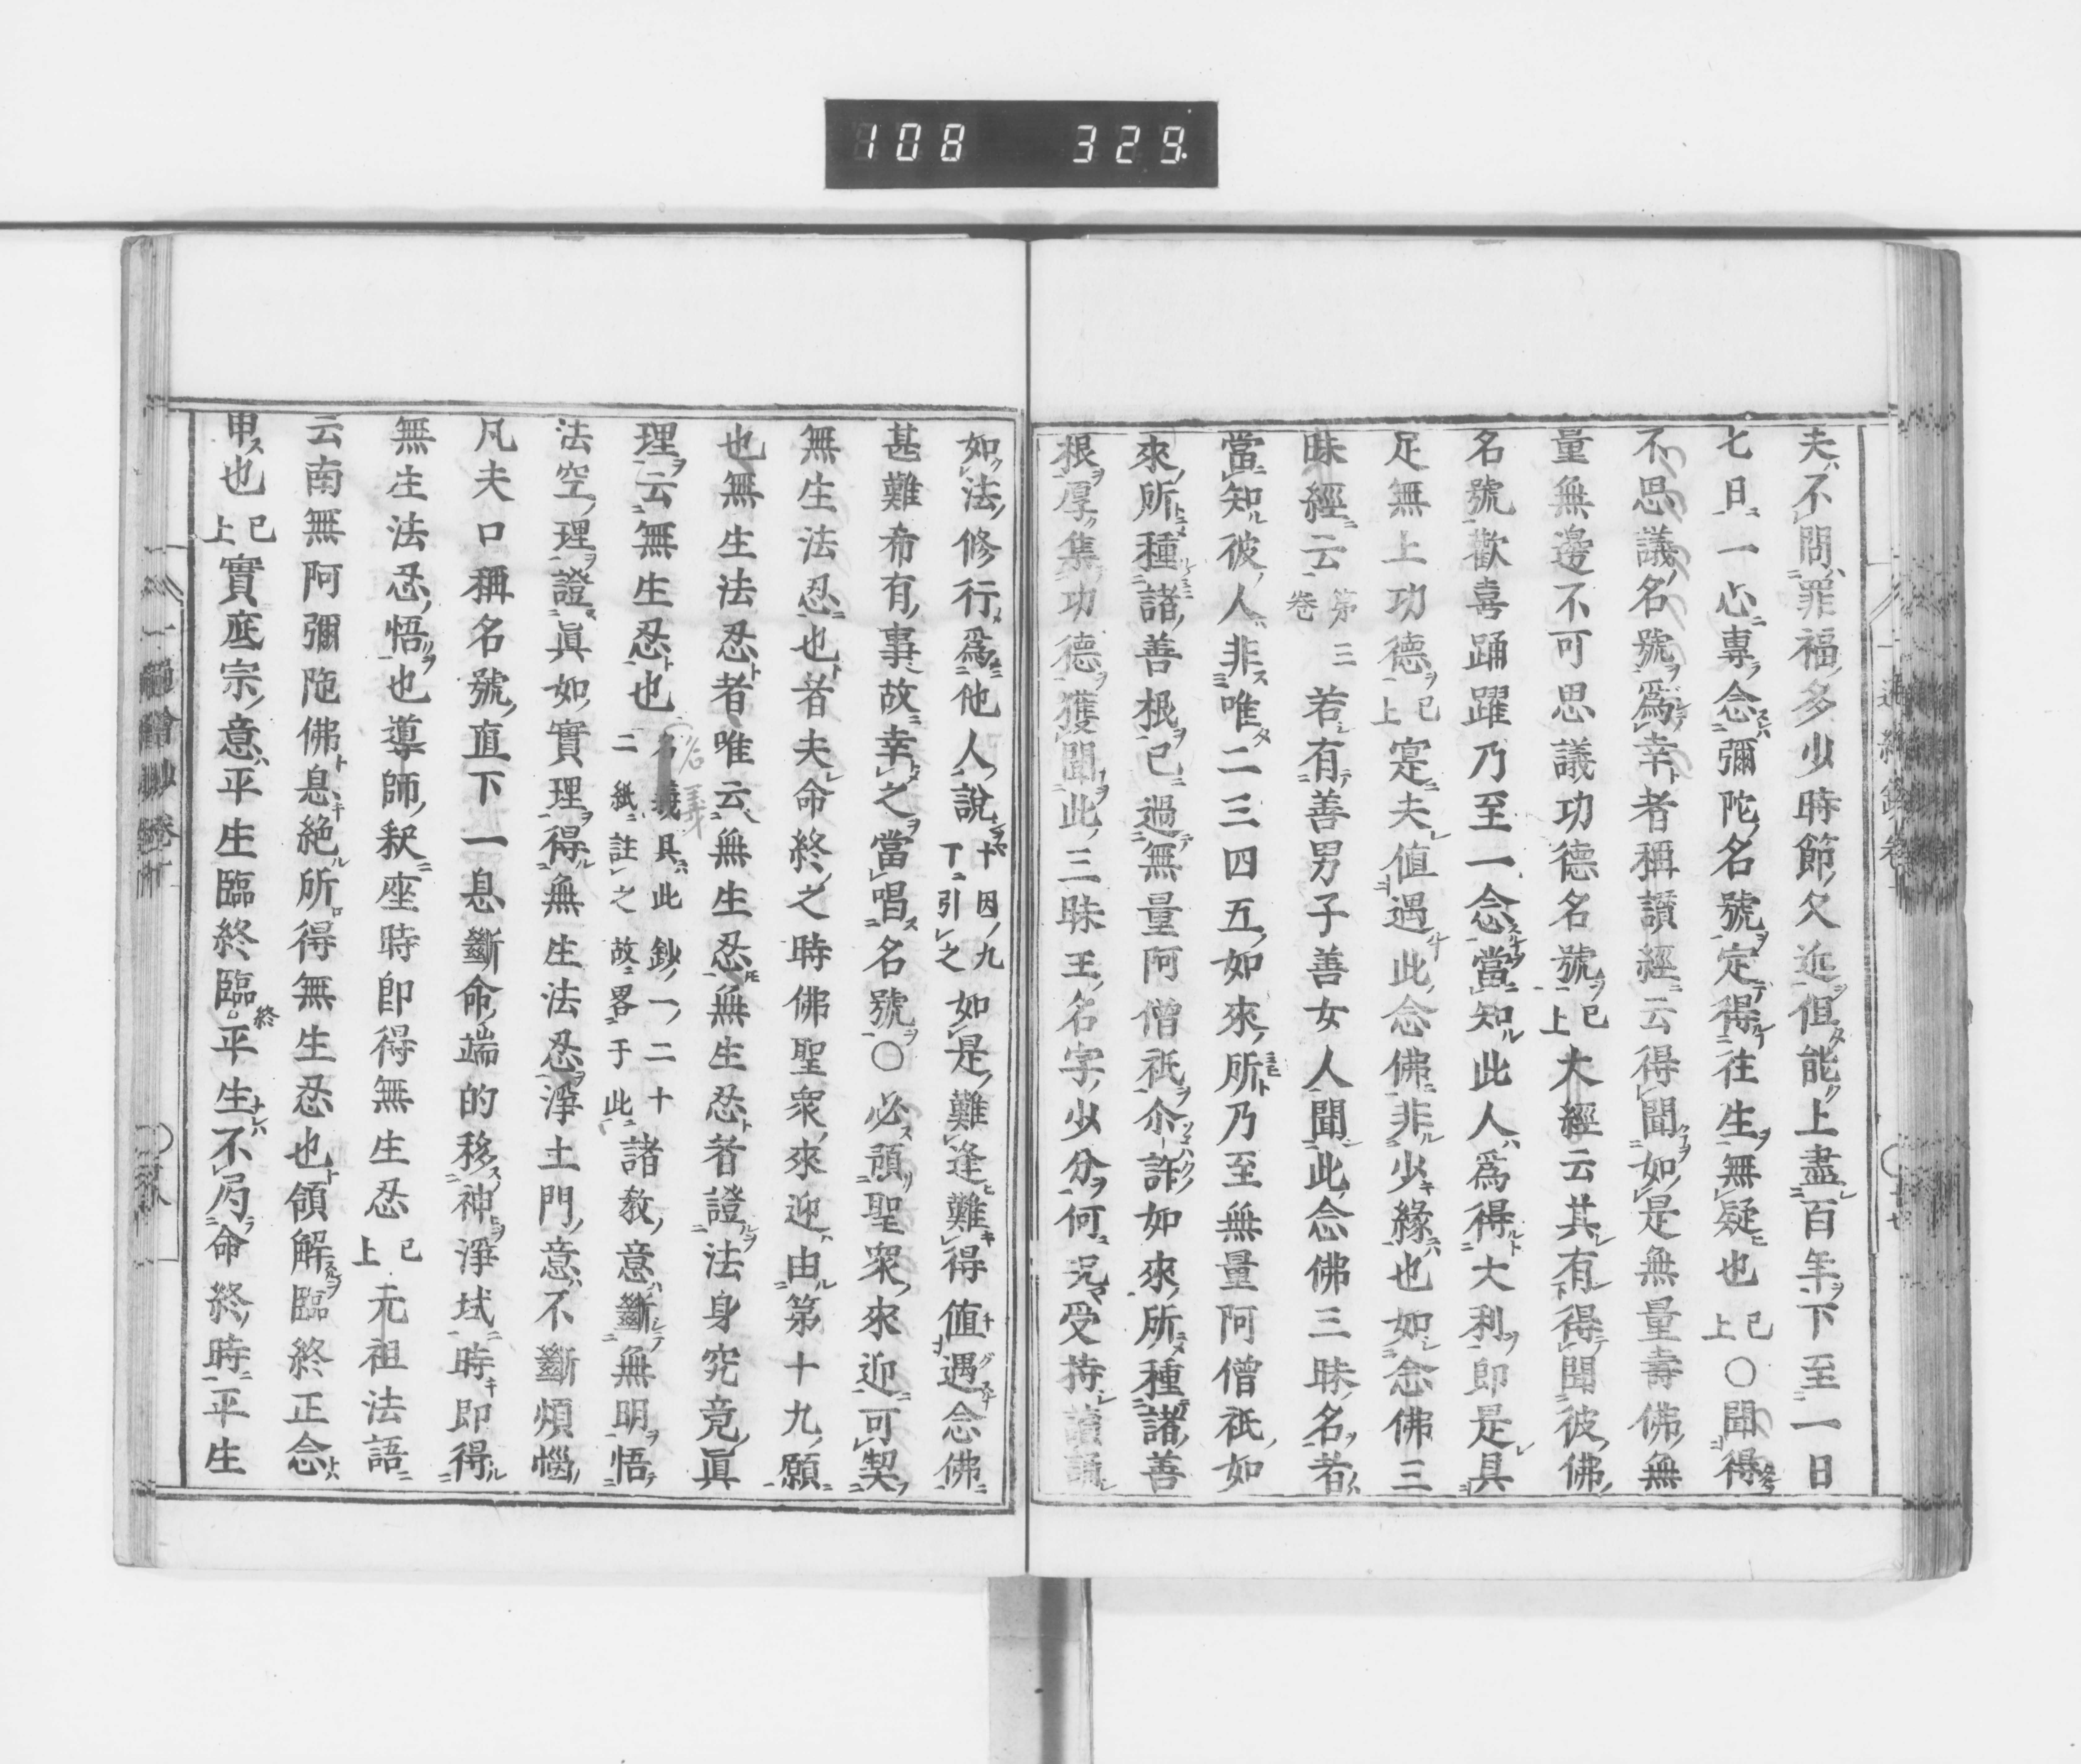 108 329
夫不問罪福多少時節久近但能上盡百年下至一日
七日一心專念彌陀名號定得往生無疑也已上〇聞得
不思議名號爲幸者稱讃經云得聞如是無量壽佛無
量無邊不可思議功德名號已上大經云其有得聞彼佛
名號歡喜踊躍乃至一念當知此人爲得大利即是具
足無上功德已上寔夫値遇此念佛非少緣也如念佛三
昧經云第三卷若有善男子善女人聞此念佛三昧名者
當知彼人非唯二三四五如來所乃至無量阿僧祇如
來所種諸善根已過無量阿僧祇尒許如來所種諸善
根厚集功德獲聞此三昧王名字少分何況受持讀誦
如法修行爲他人說十因九丁引之如是難逢難得値遇念佛
甚難希有事故幸之當唱名號〇必預聖衆來迎可契
無生法忍也者夫命終之時佛聖衆來迎由第十九願
也無生法忍者唯云無生忍無生忍者證法身究竟眞
理云無生忍也名義具此鈔一二十二紙註之故畧于此諸敎意斷無明悟
法空理證眞如實理得無生法忍淨土門意不斷煩惱
凡夫口稱名號直下一息斷命端的移神淨域時即得
無生法忍悟也導師釈座時即得無生忍已上元祖法語
云南無阿彌陁佛息絶所得無生忍也領解臨終正念
申也已上實底宗意平生臨終臨終平生不局命終時平生